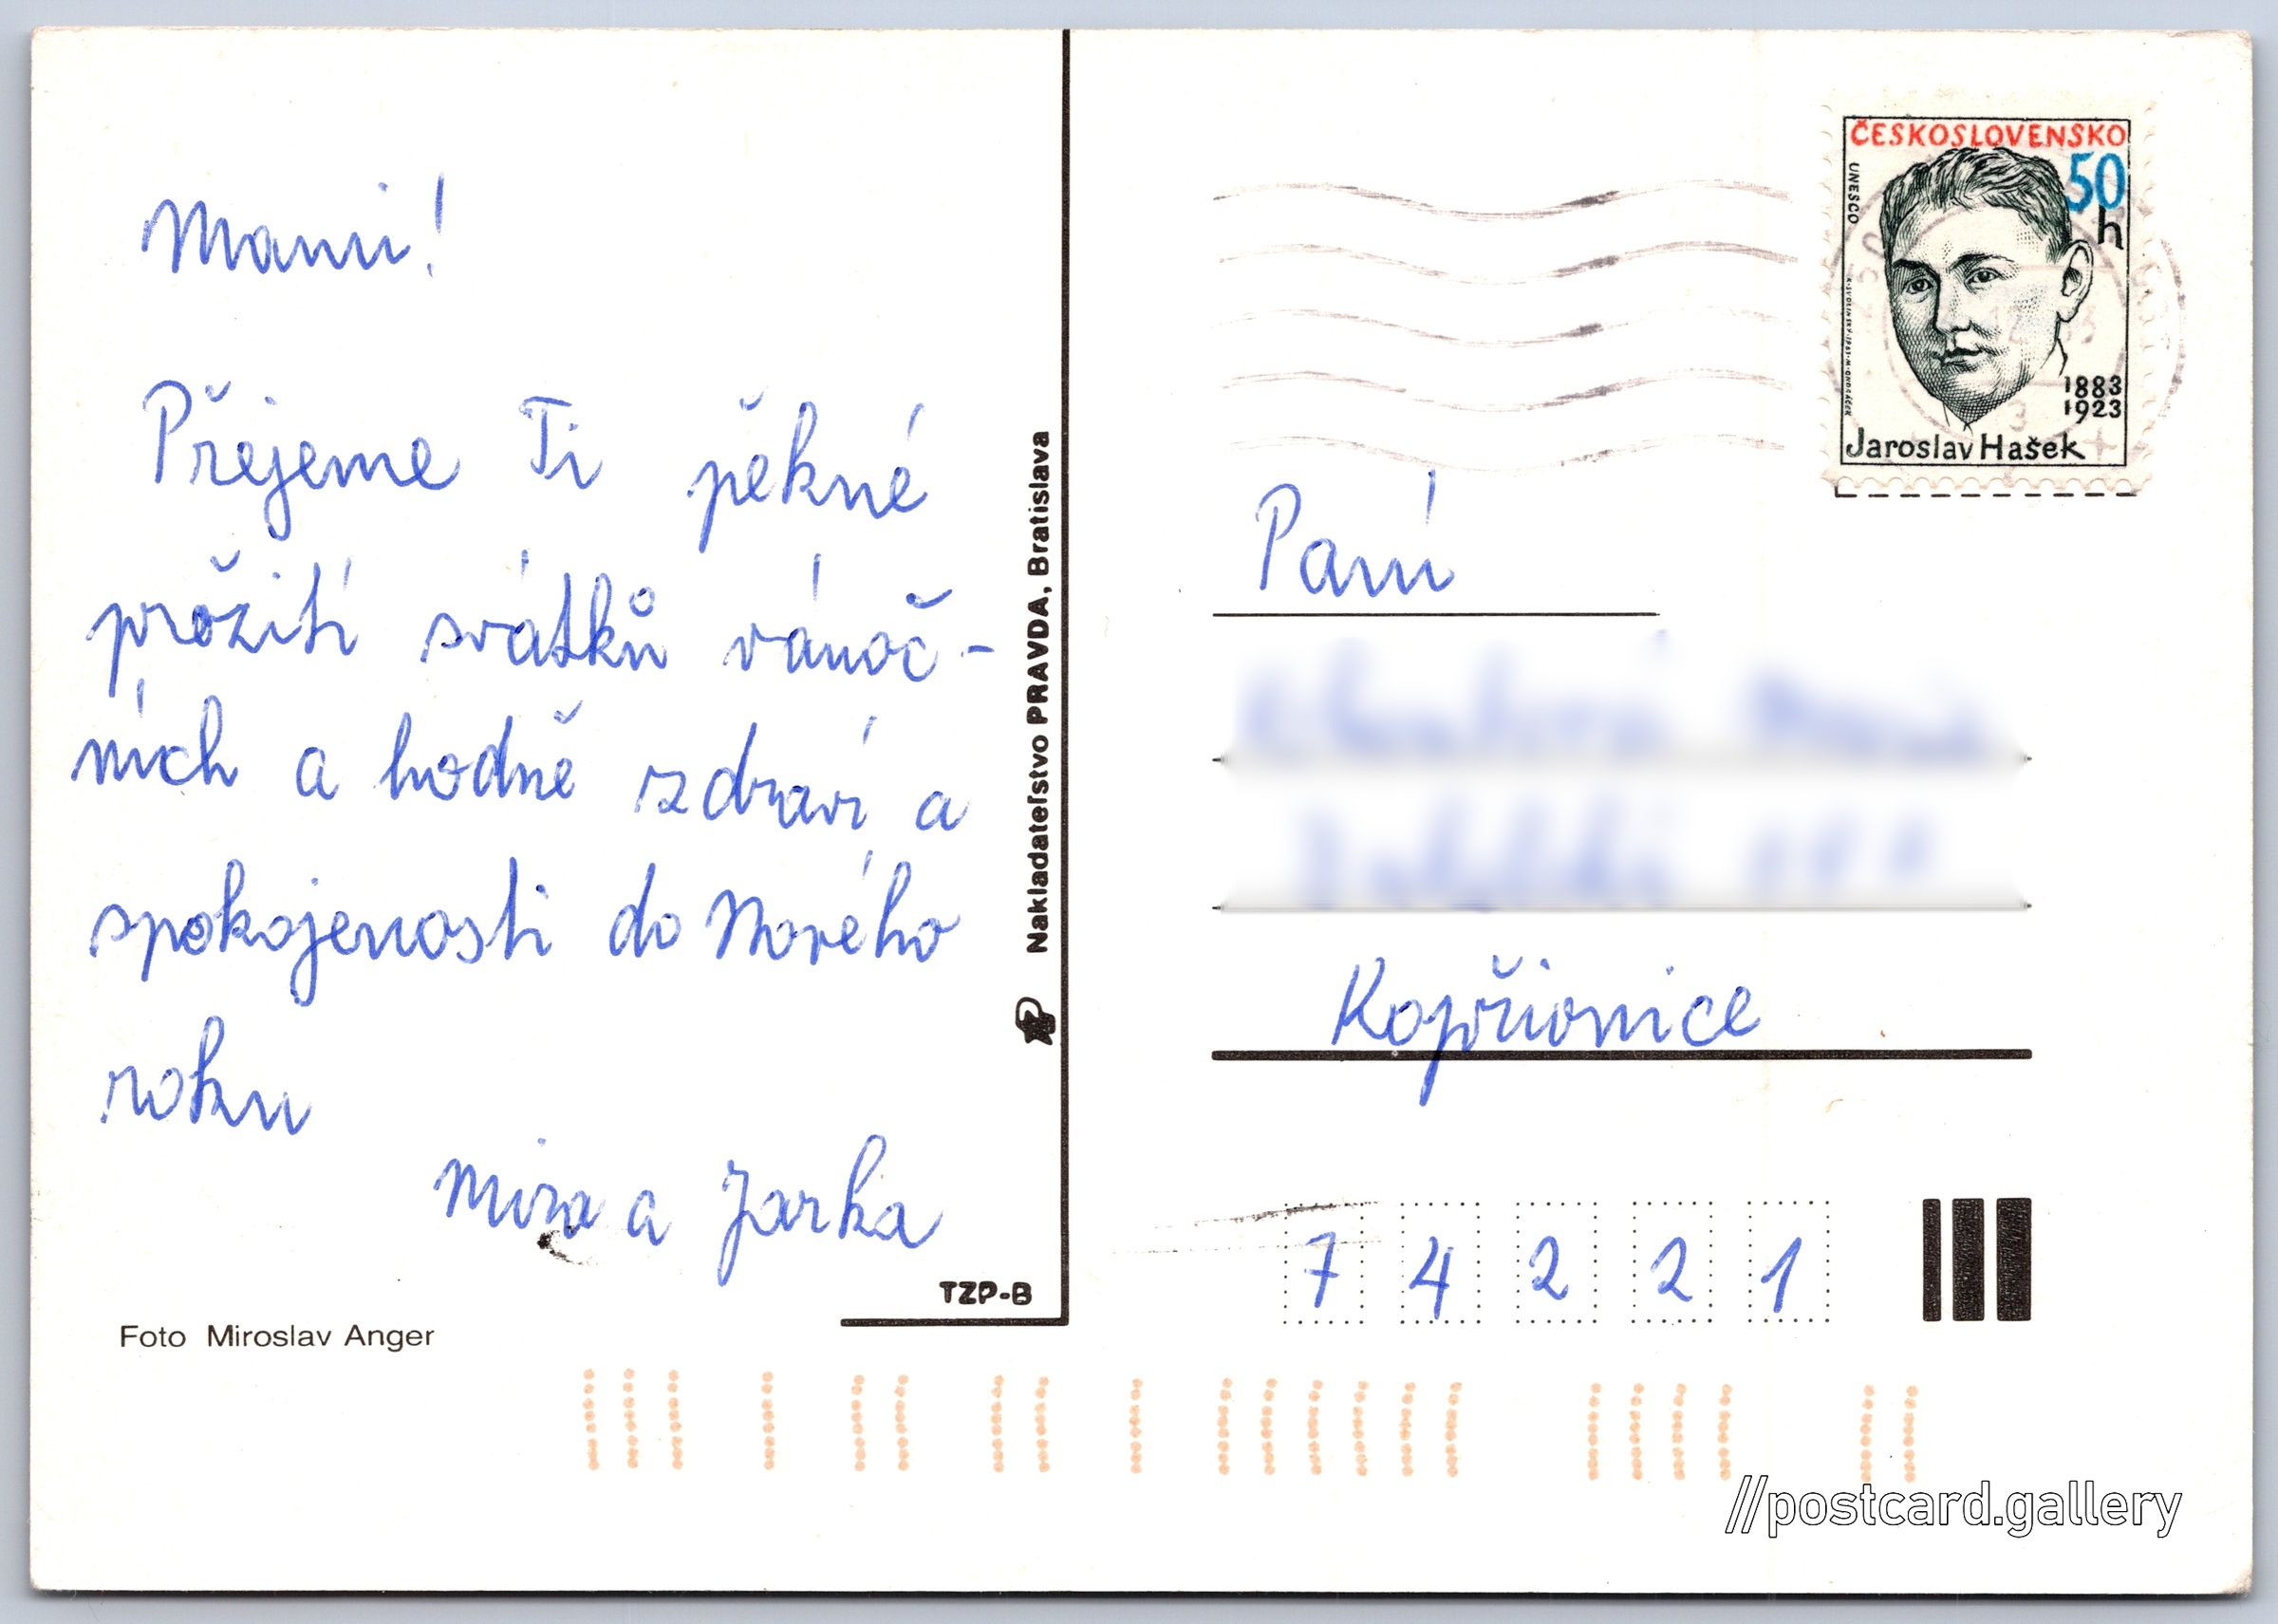 Mami!
Přejeme Ti pěkné
prožití svátků vánoč-
ních a hodně zdraví a
spokojenosti do Nového
roku
Mira a Jarka
Foto Miroslav Anger
TZP-B
Nakladateľstvo PRAVDA, Bratislava
ČESKOSLOVENSKO
50
h
UNESCO
K. SVOLINSKÝ-1983-M. ONDRÁČEK
1883
1923
Jaroslav Hašek
Paní
Kopřivnice
7 4 2 2 1
//postcard.gallery